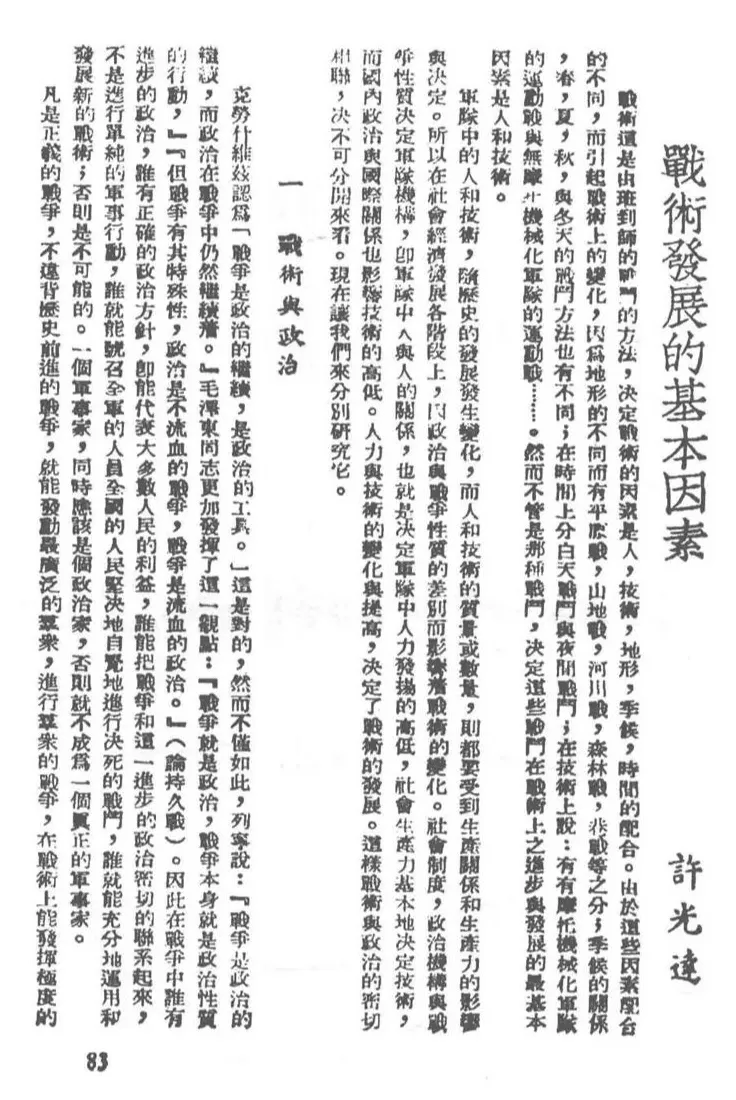 戰術發展的基本因素
許光達
戰術這是由班到師的戰鬥的方法，决定戰術的因素是人，技術，地形，季候，時間的配合。由於這些因素配合
的不同，而引起戰術上的變化，因爲地形的不同而有平原戰，山地戰，河川戰，森林戰，巷戰等之分；季候的關係
，春，夏，秋，與冬天的戰鬥方法也有不同；在時間上分白天戰鬥與夜間戰鬥；在技術上說：有有摩托機械化軍隊
的運動戰與無摩托機械化軍隊的運動戰……。然而不管是那種戰鬥，决定這些戰鬥在戰術上之進步與發展的最基本
因素是人和技術。
軍隊中的人和技術，隨歷史的發展發生變化，而人和技術的質量或數量，則都要受到生產關係和生產力的影響
與决定。所以在社會經濟發展各階段上，因政治與戰爭性質的差別而影響着戰術的變化。社會制度，政治機構與戰
爭性質决定軍隊機構，卽軍隊中人與人的關係，也就是决定軍隊中人力發揚的高低，社會生產力基本地决定技術，
而國內政治與國際關係也影響技術的高低。人力與技術的變化與提高，决定了戰術的發展。這樣戰術與政治的密切
相聯，决不可分開來看。現在讓我們來分別研究它。
一　戰術與政治
克勞什維茲認爲「戰爭是政治的繼續，是政治的工具。」這是對的，然而不僅如此，列寧說：『戰爭是政治的
繼續，而政治在戰爭中仍然繼續着。』毛澤東同志更加發揮了這一觀點：『戰爭就是政治，戰爭本身就是政治性質
的行動，』『但戰爭有其特殊性，政治是不流血的戰爭，戰爭是流血的政治。』（論持久戰）。因此在戰爭中誰有
進步的政治，誰有正確的政治方針，卽能代表大多數人民的利益，誰能把戰爭和這一進步的政治密切的聯系起來，
不是進行單純的軍事行動，誰就能號召全軍的人員全國的人民堅决地自覺地進行决死的戰鬥，誰就能充分地運用和
發展新的戰術；否則是不可能的。一個軍事家，同時應該是個政治家，否則就不成爲一個眞正的軍事家。
凡是正義的戰爭，不違背歷史前進的戰爭，就能發動最廣泛的羣衆，進行羣衆的戰爭，在戰術上能發揮極度的
83